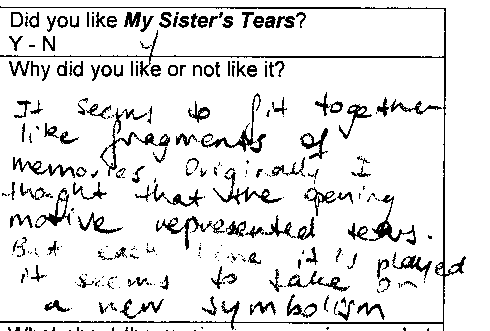 Did you like My Sister's Tears?
Y - N y
Why did you like or not like it?
It seems to fit together
like fragments of
memories. Originally I
thought that the opening
motive represented tears.
But each time it is played
it seems to take on
a new symbolism